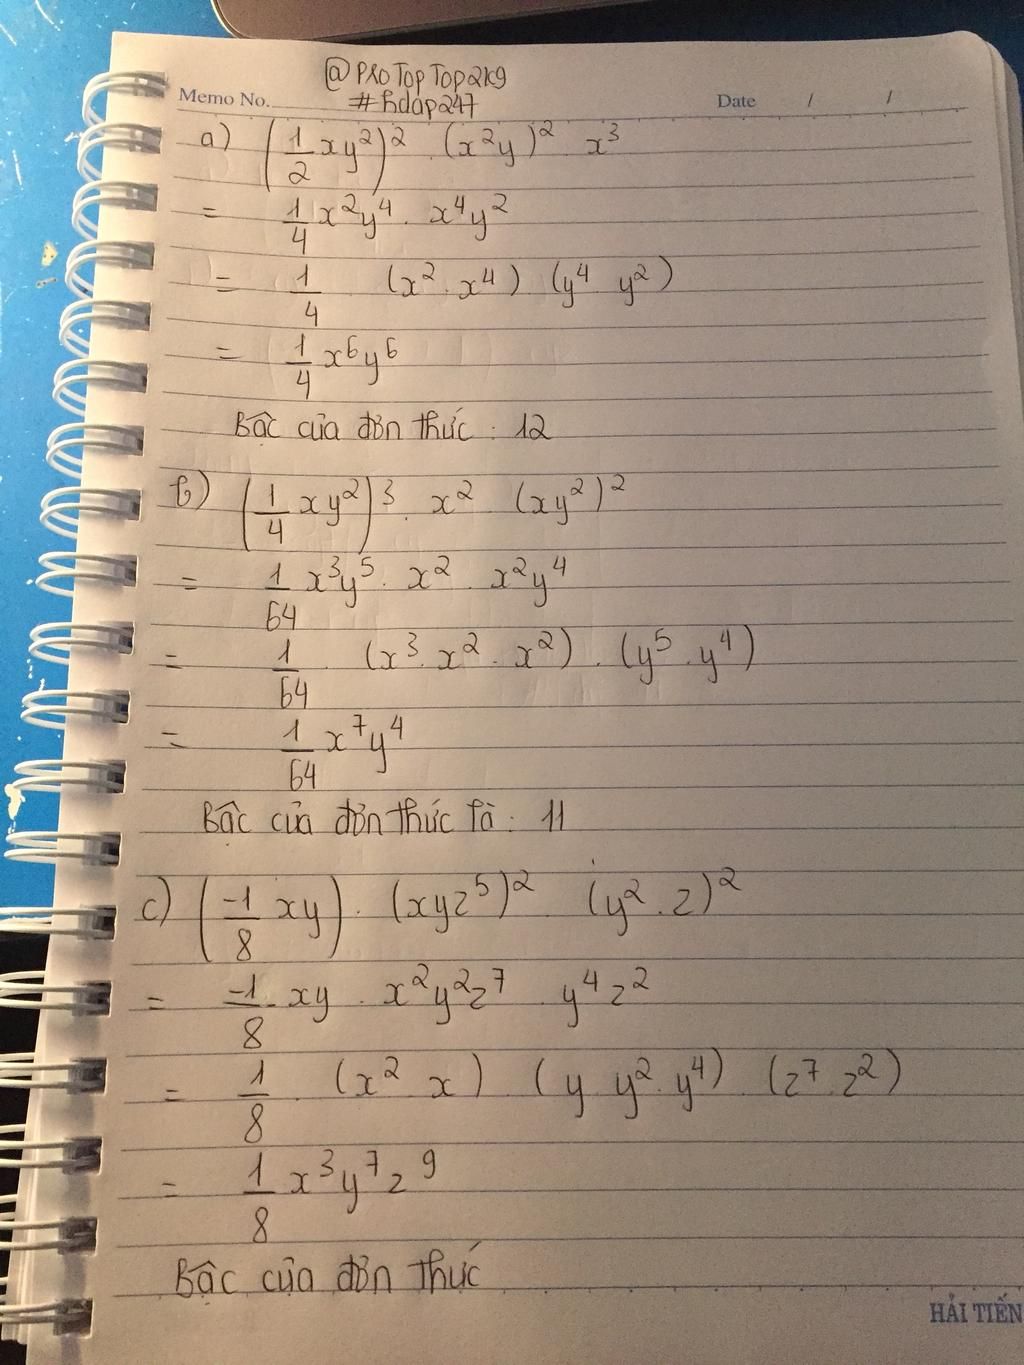 @PROTOPTOP2K9
Memo No. #hdap247 Date / /
a) (1/2 xy²)² . (x²y)² x³
= 1/4 x²y⁴ . x⁴y²
= 1/4 (x² . x⁴) (y⁴ y²)
= 1/4 x⁶y⁶
Bậc của đơn thức : 12
b) (1/4 xy²)³ . x² (xy²)²
= 1/64 x³y⁵ . x² x²y⁴
= 1/64 . (x³ . x² . x²) . (y⁵ . y⁴)
= 1/64 x⁷y⁴
Bậc của đơn thức là : 11
c) (-1/8 xy) . (xyz⁵)² (y² . z)²
= -1/8 . xy . x²y²z⁷ y⁴z²
= 1/8 . (x² x) (y y² . y⁴) (z⁷ . z²)
= 1/8 x³y⁷z⁹
Bậc của đơn thức
HẢI TIẾN